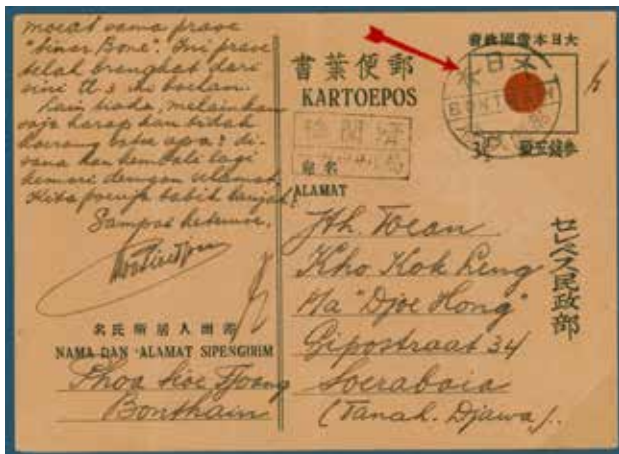 moeat sama praoe
"Sinar Bone". Ini praoe
telah brangkat dari
sini tl. 3 ini boelan.
Lain tiada, melainkan
saja harap kan tidak
koerang satoe apa2 di-
sana kan kembali lagi
kemari dengan selamat.
Kita poenja tabik banjak2
Sampai ketemoe.
名氏所居人出差
NAMA DAN ALAMAT SIPENGIRIM
Thoa Sioe Tjoang
Bonthain
大日本帝國政府
本日大
BONTHAIN
書葉便郵
KARTOEPOS
檢閲濟
宛名
ALAMAT
Jth. Toean
Kho Kok Leng
Pa "Djoe Hong"
Gipostraat 34
Soerabaia
(Tanah. Djawa).
セレベス民政部